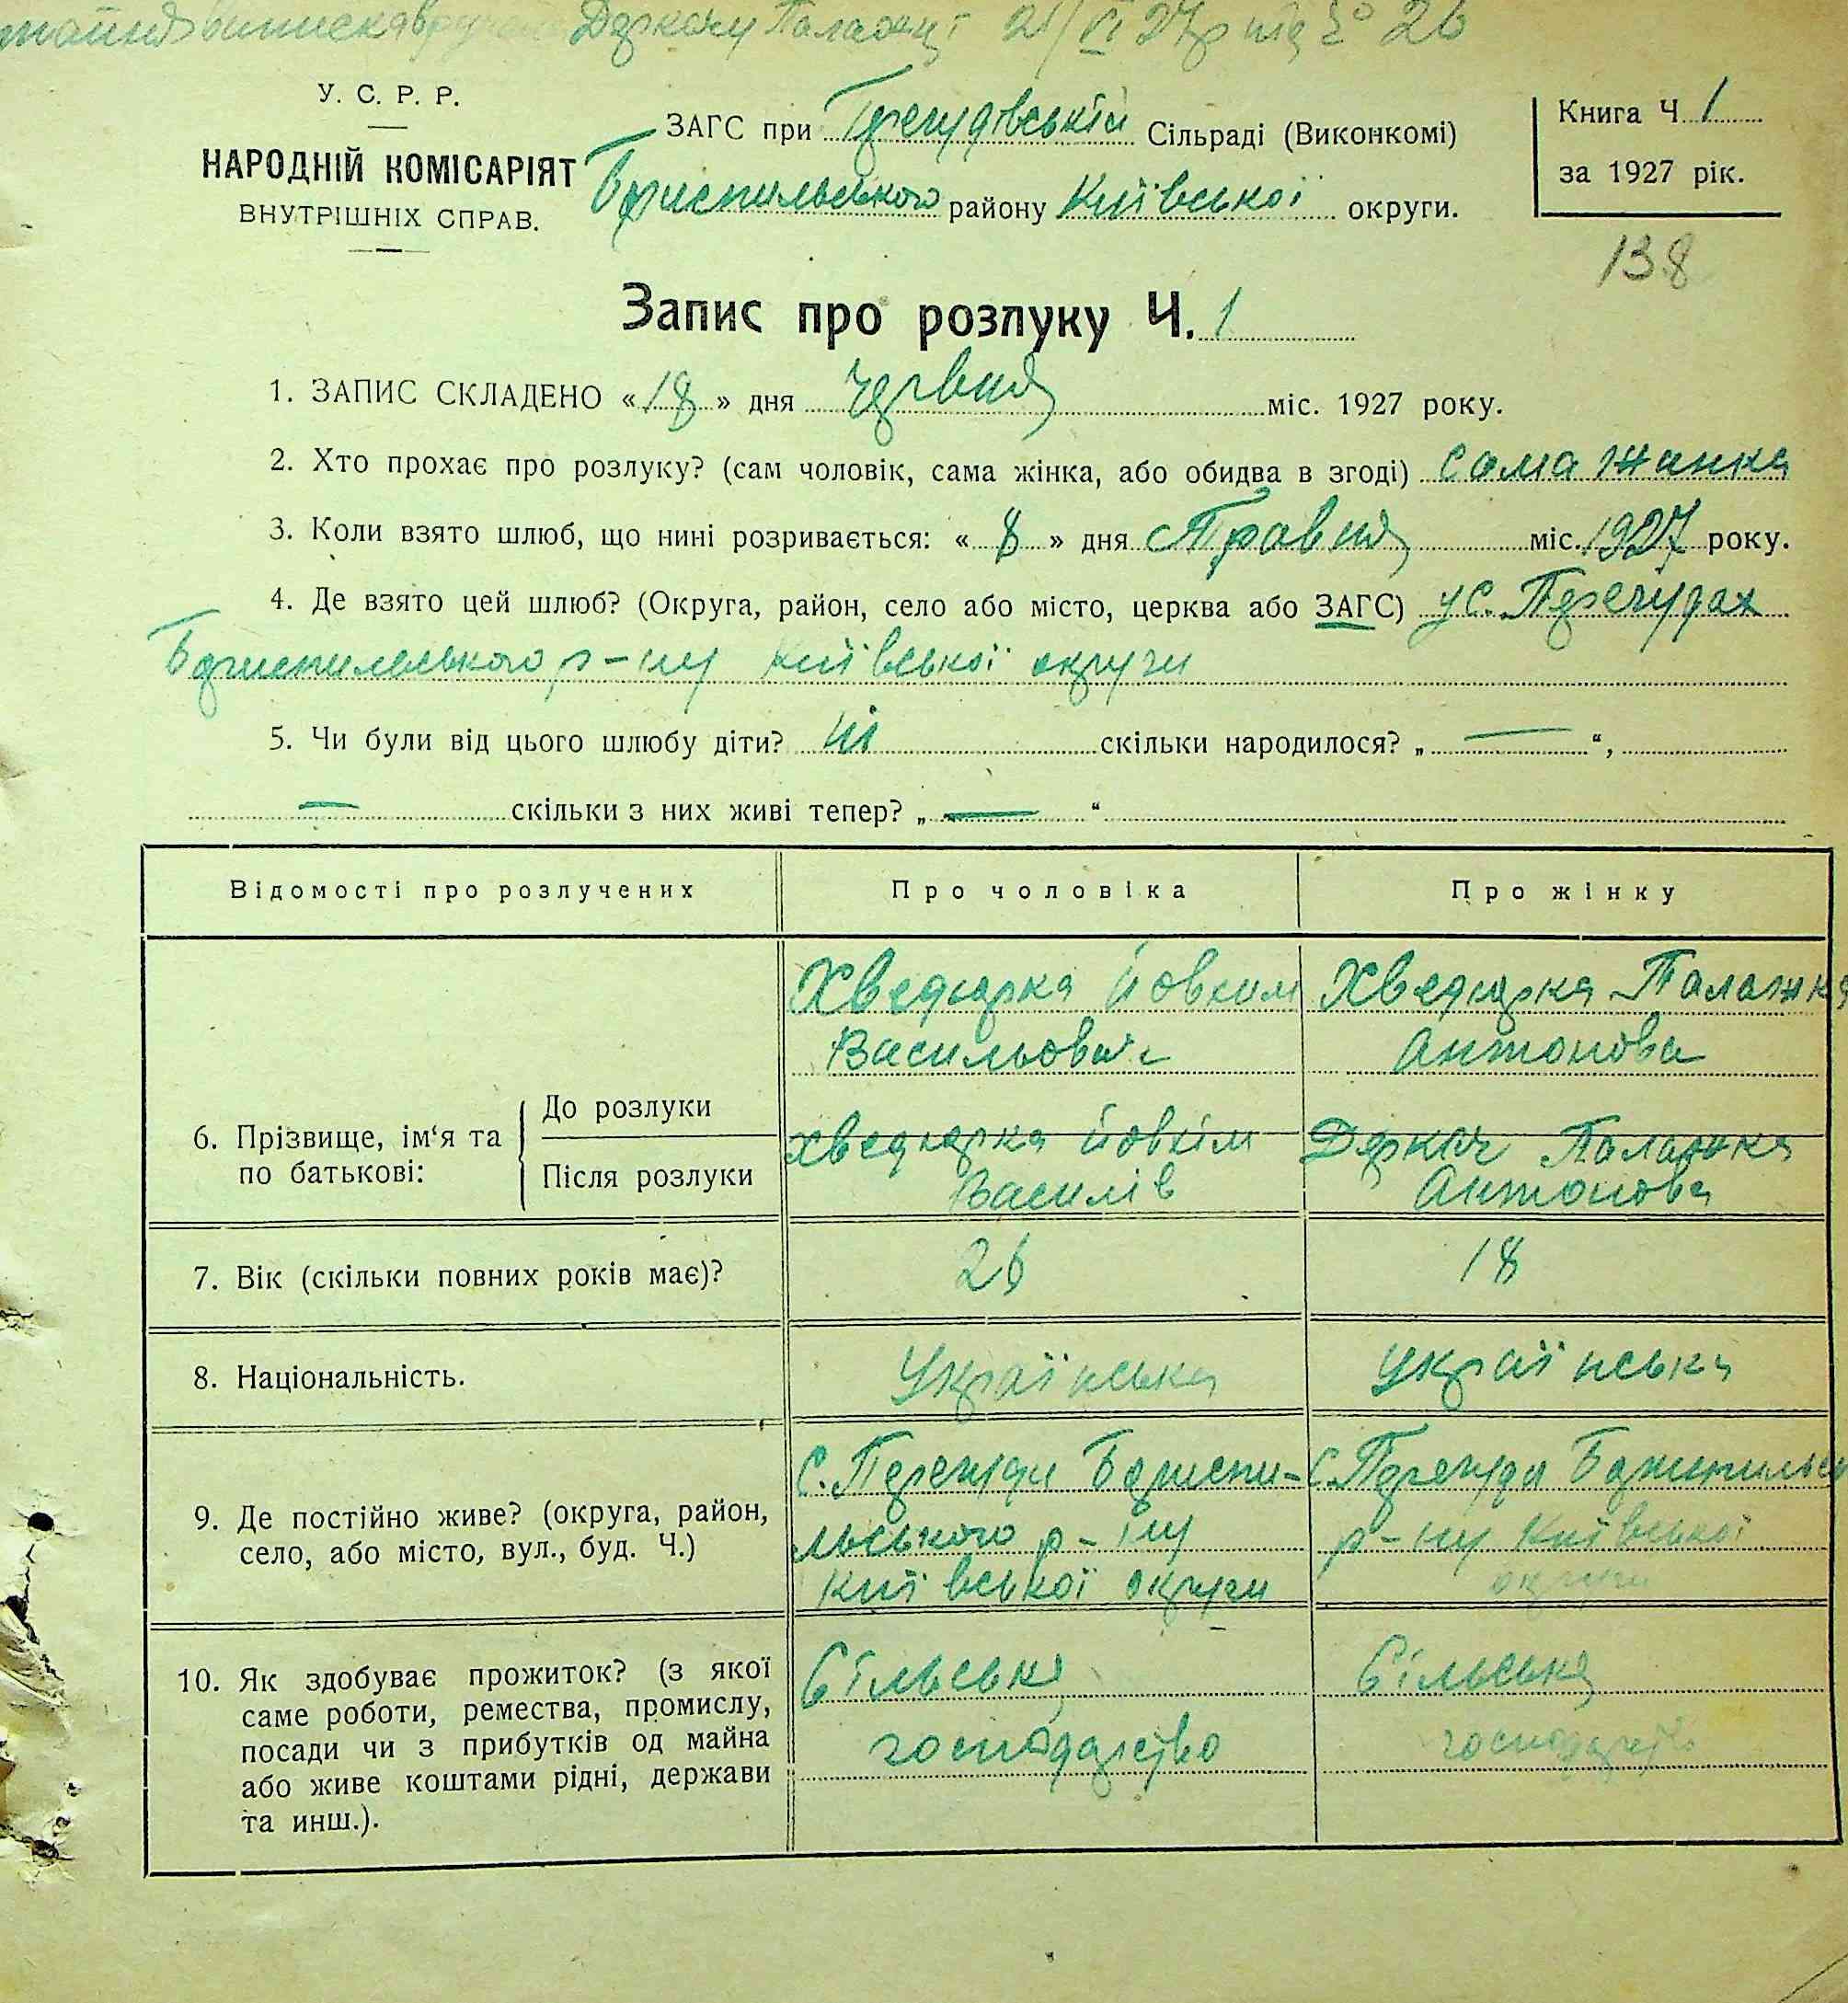 виписка Деркачу Палажці 21/VI 27р під № 26
У. С. Р. Р.
НАРОДНІЙ КОМІСАРІЯТ
ВНУТРІШНІХ СПРАВ.
ЗАГС при Гречудівській Сільраді (Виконкомі)
Бориспильського району Київської округи.
Книга Ч 1
за 1927 рік.
138
Запис про розлуку Ч. 1
1. ЗАПИС СКЛАДЕНО «18» дня червня міс. 1927 року.
2. Хто прохає про розлуку? (сам чоловік, сама жінка, або обидва в згоді) сама жинка
3. Коли взято шлюб, що нині розривається: «8» дня Травня міс. 1927 року.
4. Де взято цей шлюб? (Округа, район, село або місто, церква або ЗАГС) у с.
Бориспильського р-ну Київської округи
5. Чи були від цього шлюбу діти? ні скільки народилося? „ — “,
— скільки з них живі тепер? „ — “
Відомості про розлучених
Про чоловіка
Про жінку
6. Прізвище, ім‘я та по батькові:
До розлуки
Хведюрка Йовхим
Васильович
Хведюрка Палажка
Антонова
Після розлуки
Хведюрка Йовхім
Василів
Деркач Палажка
Антонова
7. Вік (скільки повних років має)?
26
18
8. Національність.
Українська
Українська
9. Де постійно живе? (округа, район,
село, або місто, вул., буд. Ч.)
с. Бориспи-
льського р-ну
Київської округи
с. Бориспильськ
р-ну Київської
округи
10. Як здобуває прожиток? (з якої
саме роботи, ремества, промислу,
посади чи з прибутків од майна
або живе коштами рідні, держави
та инш.).
Сільське
господарство
Сільське
господарство